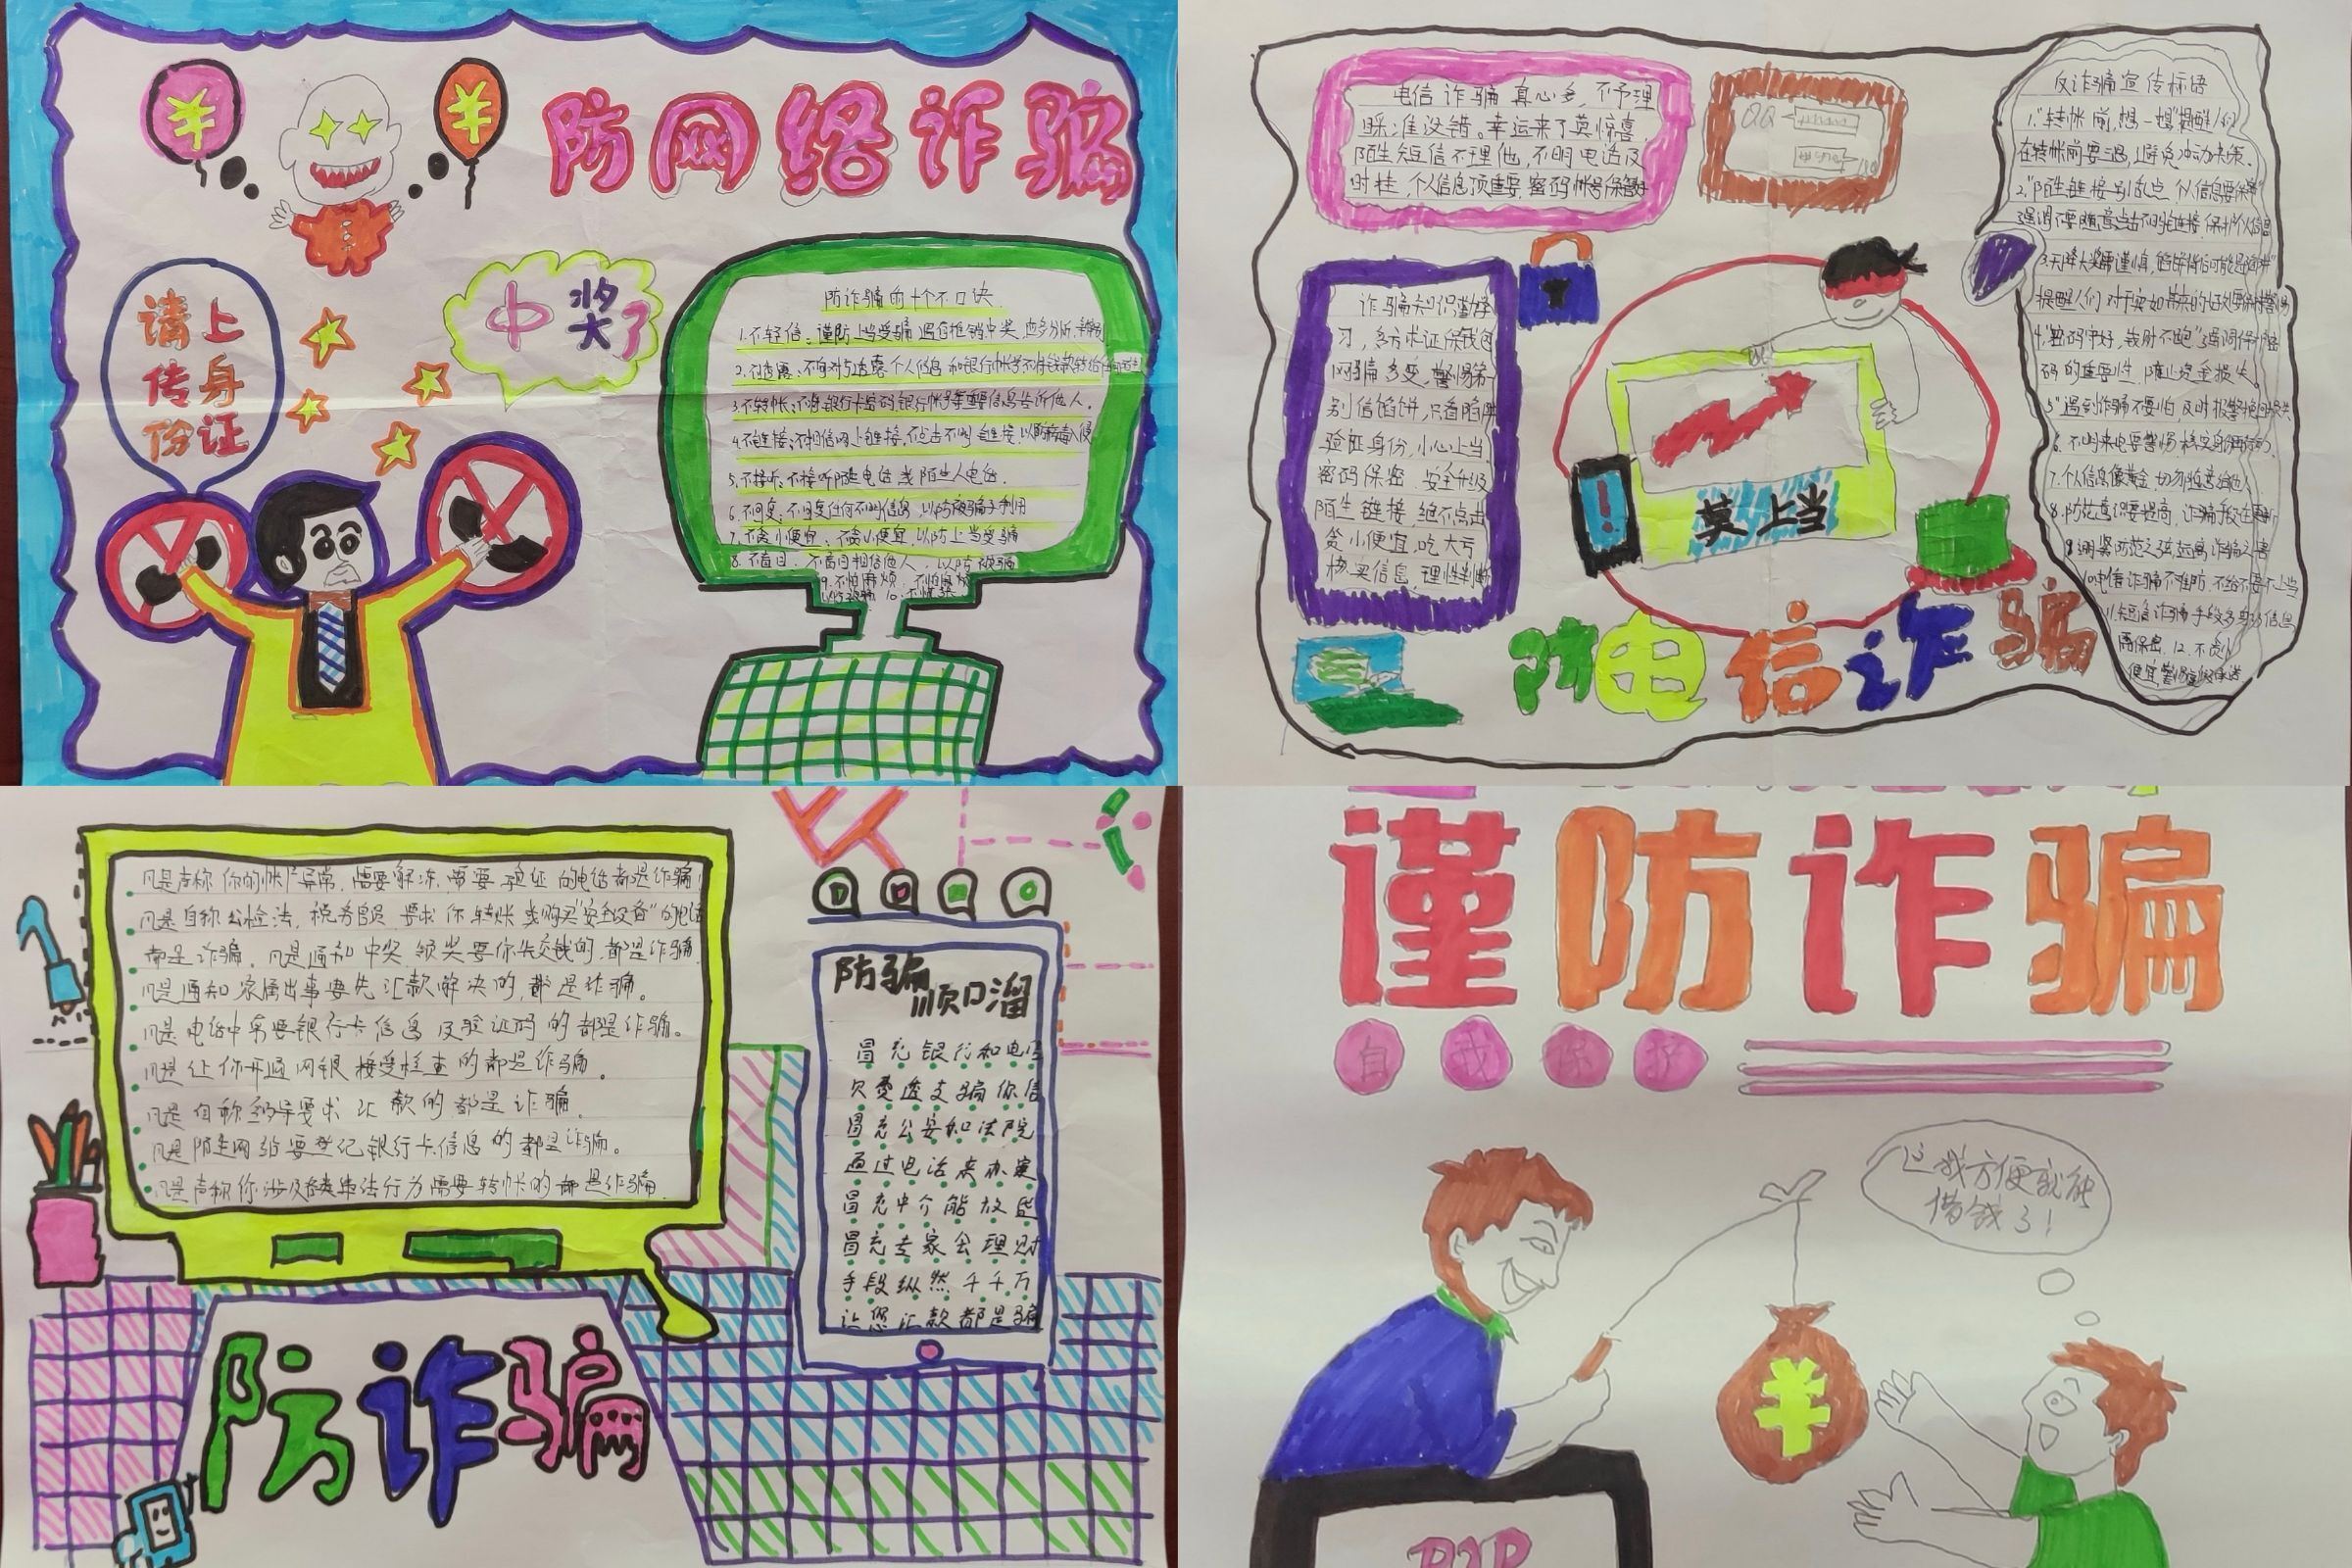 防网络诈骗
请上
传身
份证
中奖了
防诈骗的十个不口诀
1.不轻信：谨防上当受骗
3.不转帐：不将银行卡密码,银行帐号等重要信息告诉他人。
4.不链接：不相信网上链接,不点击不明链接,以防病毒入侵
5.不接听：不接听陌生电话或陌生人电话.
6.不回复：不回复任何不明信息,以防被骗子利用
7.不贪小便宜：不贪小便宜,以防上当受骗
8.不盲目：不盲目相信他人，以防被骗
电信诈骗真心多,不予理
睬准没错。幸运来了莫惊喜,
陌生短信不理他,不明电话及
时挂,个人信息顶重要,密码帐号保管好
QQ
诈骗知识勤学
习，多方求证保钱包
网骗多变,警惕第一
别信馅饼,只看陷阱
验证身份,小心上当
密码保密,安全升级
陌生链接,绝不点击
贪小便宜,吃大亏
核实信息,理性判断
莫上当
防电信诈骗
反诈骗宣传标语
1."转帐前,想一想"提醒人们
在转帐前要三思,避免冲动决策.
2."陌生链接别乱点,个人信息要保密"
强调不要随意点击不明链接,保护个人信息
提醒人们对于突如其来的好处要保持警惕
码的重要性,防止资金损失。
6.不明来电要警惕
7.个人信息像黄金,切勿随意给他人
8.防范意识要提高,诈骗手段在更新
9.绷紧防范之弦,远离诈骗之害
10.电信诈骗不难防,不给不要不上当
需保密.12.不贪小
凡是声称你的帐户异常,需要解冻,需要验证的电话都是诈骗!
凡是自称公检法,税务官员,要求你转账或购买"安全设备"的电话
都是诈骗.凡是通知中奖领奖要你先交钱的,都是诈骗.
凡是通知家属出事要先汇款解决的,都是诈骗。
凡是电话中索要银行卡信息及验证码的都是诈骗。
凡是让你开通网银接受检查的都是诈骗。
凡是自称领导要求汇款的都是诈骗.
凡是陌生网站要登记银行卡信息的都是诈骗。
凡是声称你涉及各类违法行为需要转帐的都是诈骗.
防诈骗
防骗顺口溜
冒充银行和电信
欠费透支骗你信
冒充公安和法院
通过电话来办案
冒充中介能放贷
冒充专家会理财
手段纵然千千万
让您汇款都是骗
谨防诈骗
自我保护
这我方便就能
借钱了!
P2P